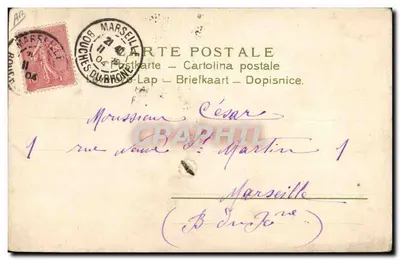 MARSEILLE
11
04
MARSEILLE
11
04
BOUCHES DU RHONE
CARTE POSTALE
Postkarte — Cartolina postale
-Lap — Briefkaart — Dopisnice.
Moussieur César
1 rue neuve St Martin 1
Marseille
(B du Rne)
CPAPHIL